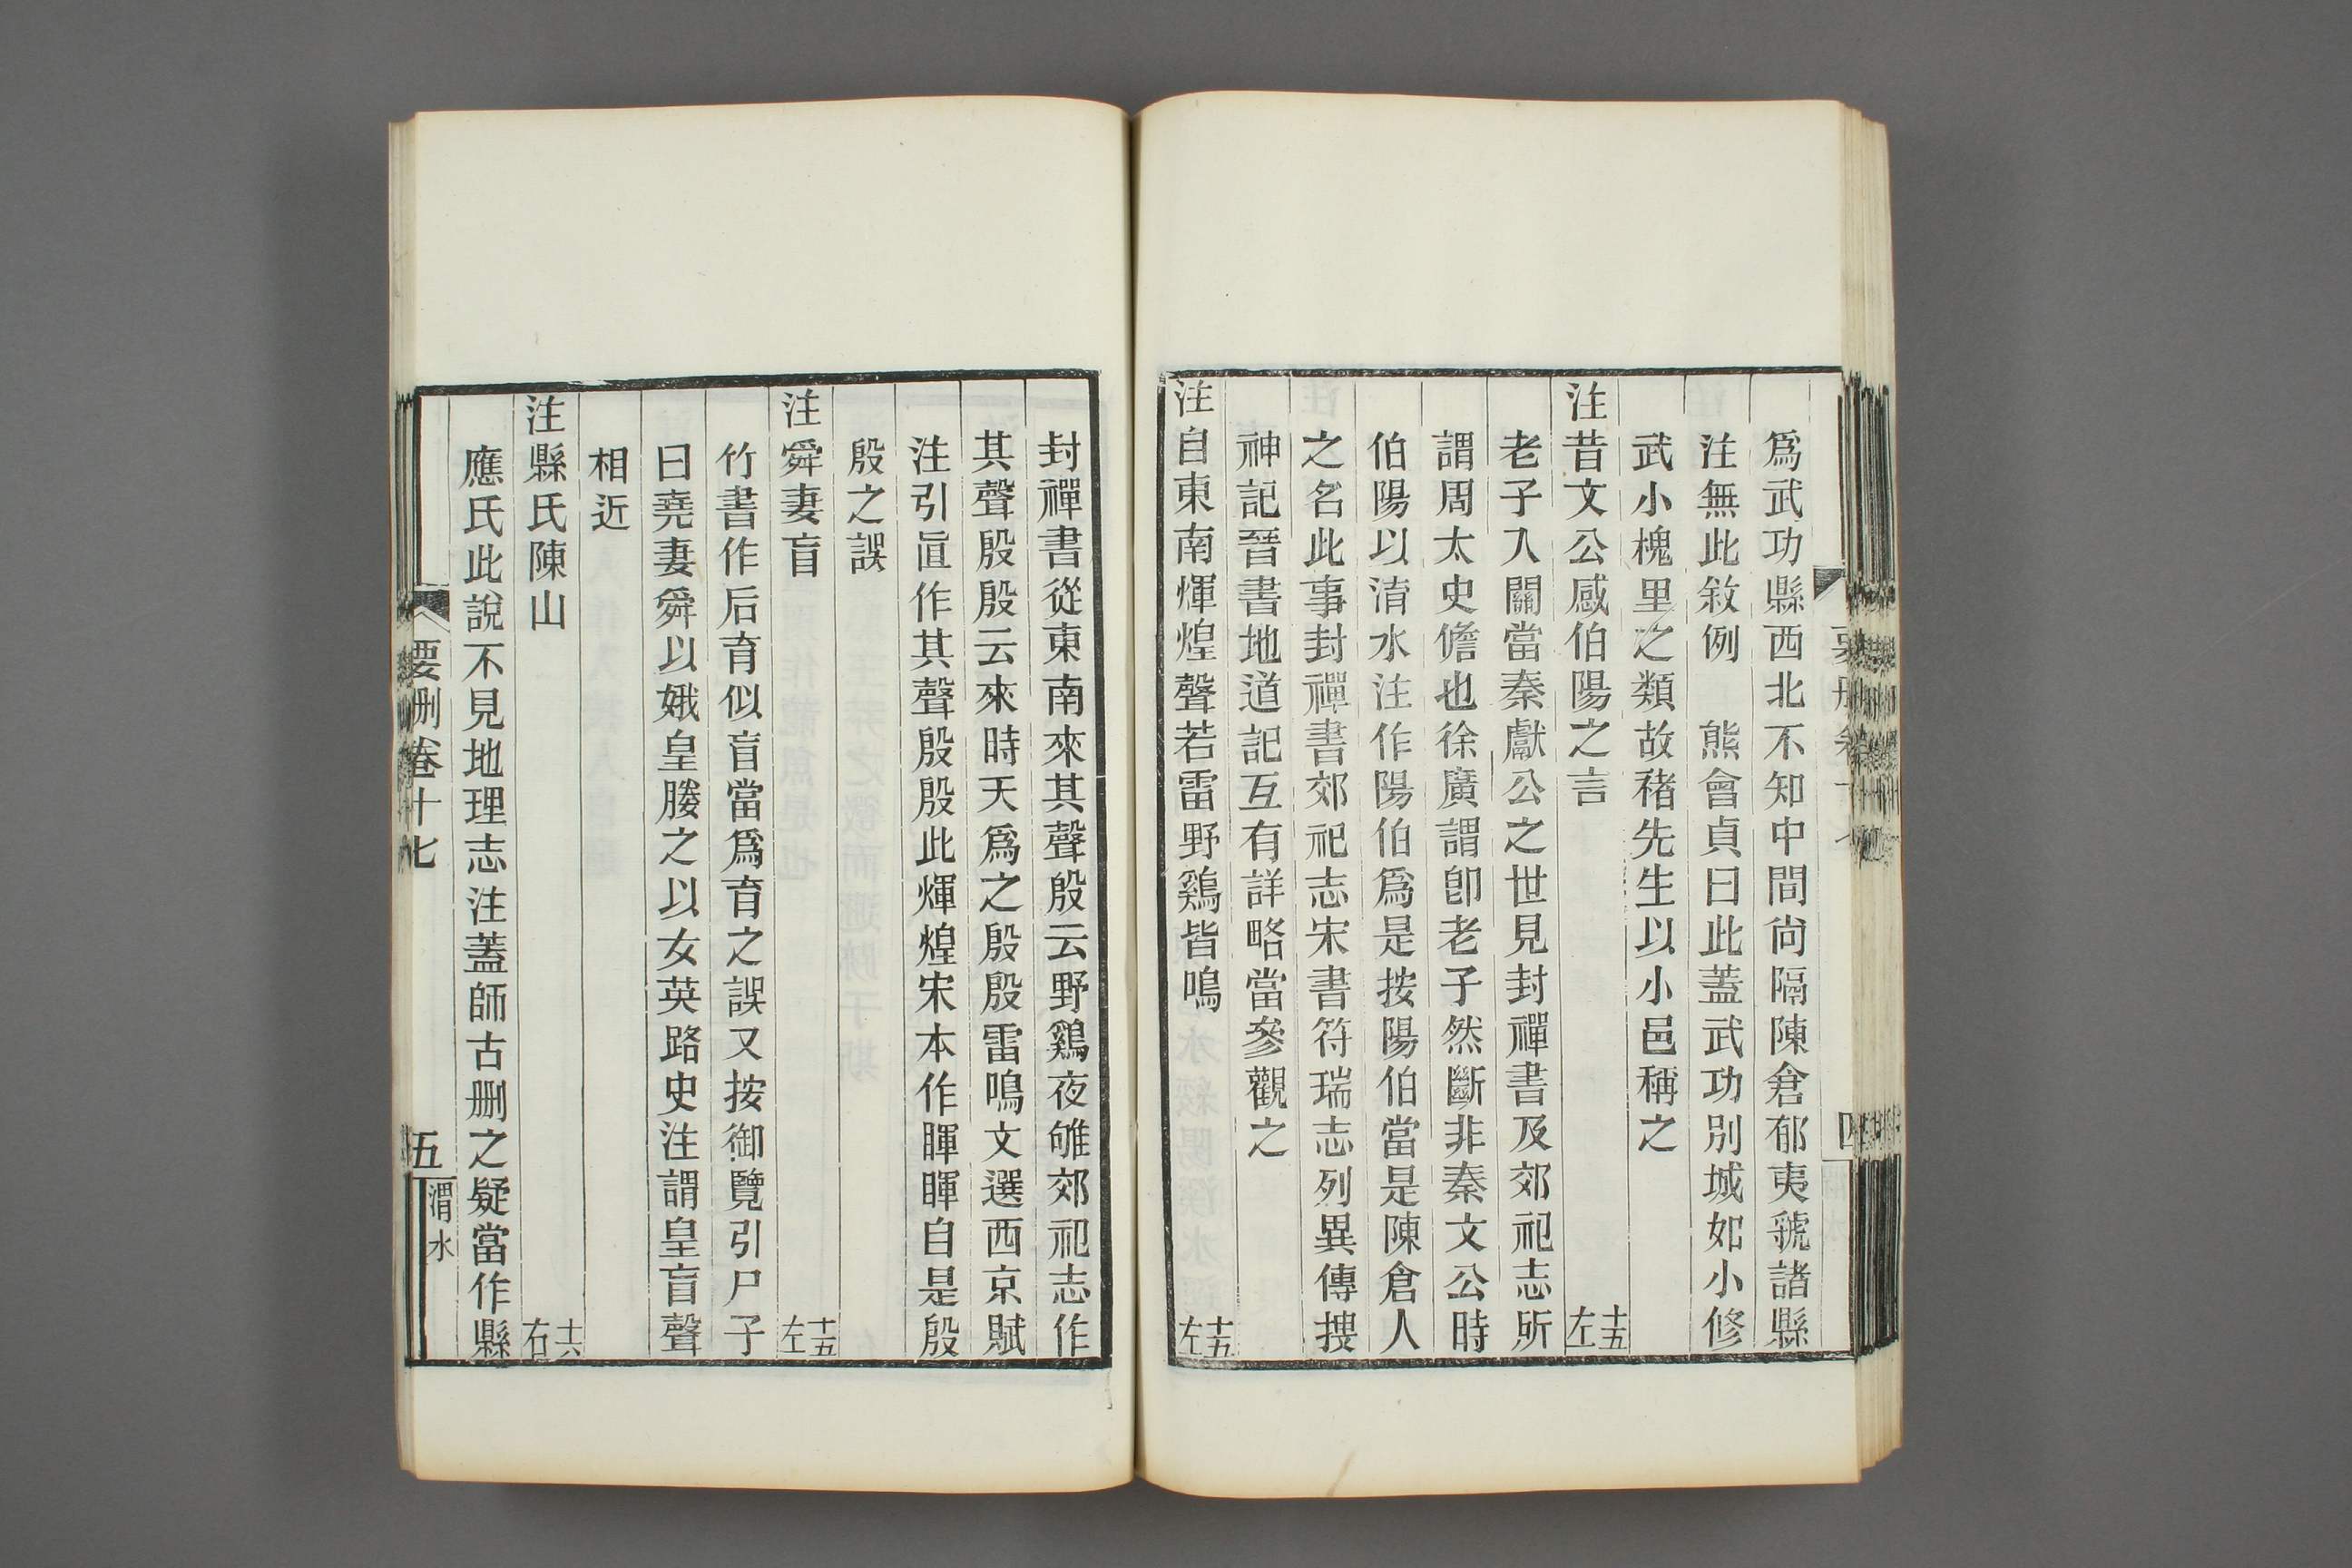 爲武功縣西北不知中間尙隔陳倉郁夷虢諸縣
注無此敘例　熊會貞曰此蓋武功別城如小修
武小槐里之類故褚先生以小邑稱之
注昔文公感伯陽之言
十五
左
老子入關當秦獻公之世見封禪書及郊祀志所
謂周太史儋也徐廣謂卽老子然斷非秦文公時
伯陽以淯水注作陽伯爲是按陽伯當是陳倉人
之名此事封禪書郊祀志宋書符瑞志列異傳搜
神記晉書地道記互有詳略當參觀之
注自東南煇煌聲若雷野鷄皆鳴
十五
左
封禪書從東南來其聲殷云野鷄夜雊郊祀志作
其聲殷殷云來時天爲之殷殷雷鳴文選西京賦
注引直作其聲殷殷此煇煌宋本作暉暉自是殷
殷之誤
注舜妻盲
十五
左
竹書作后育似盲當爲育之誤又按御覽引尸子
曰堯妻舜以娥皇媵之以女英路史注謂皇盲聲
相近
注縣氏陳山
十六
右
應氏此說不見地理志注蓋師古刪之疑當作縣
要刪卷十七
五
渭水